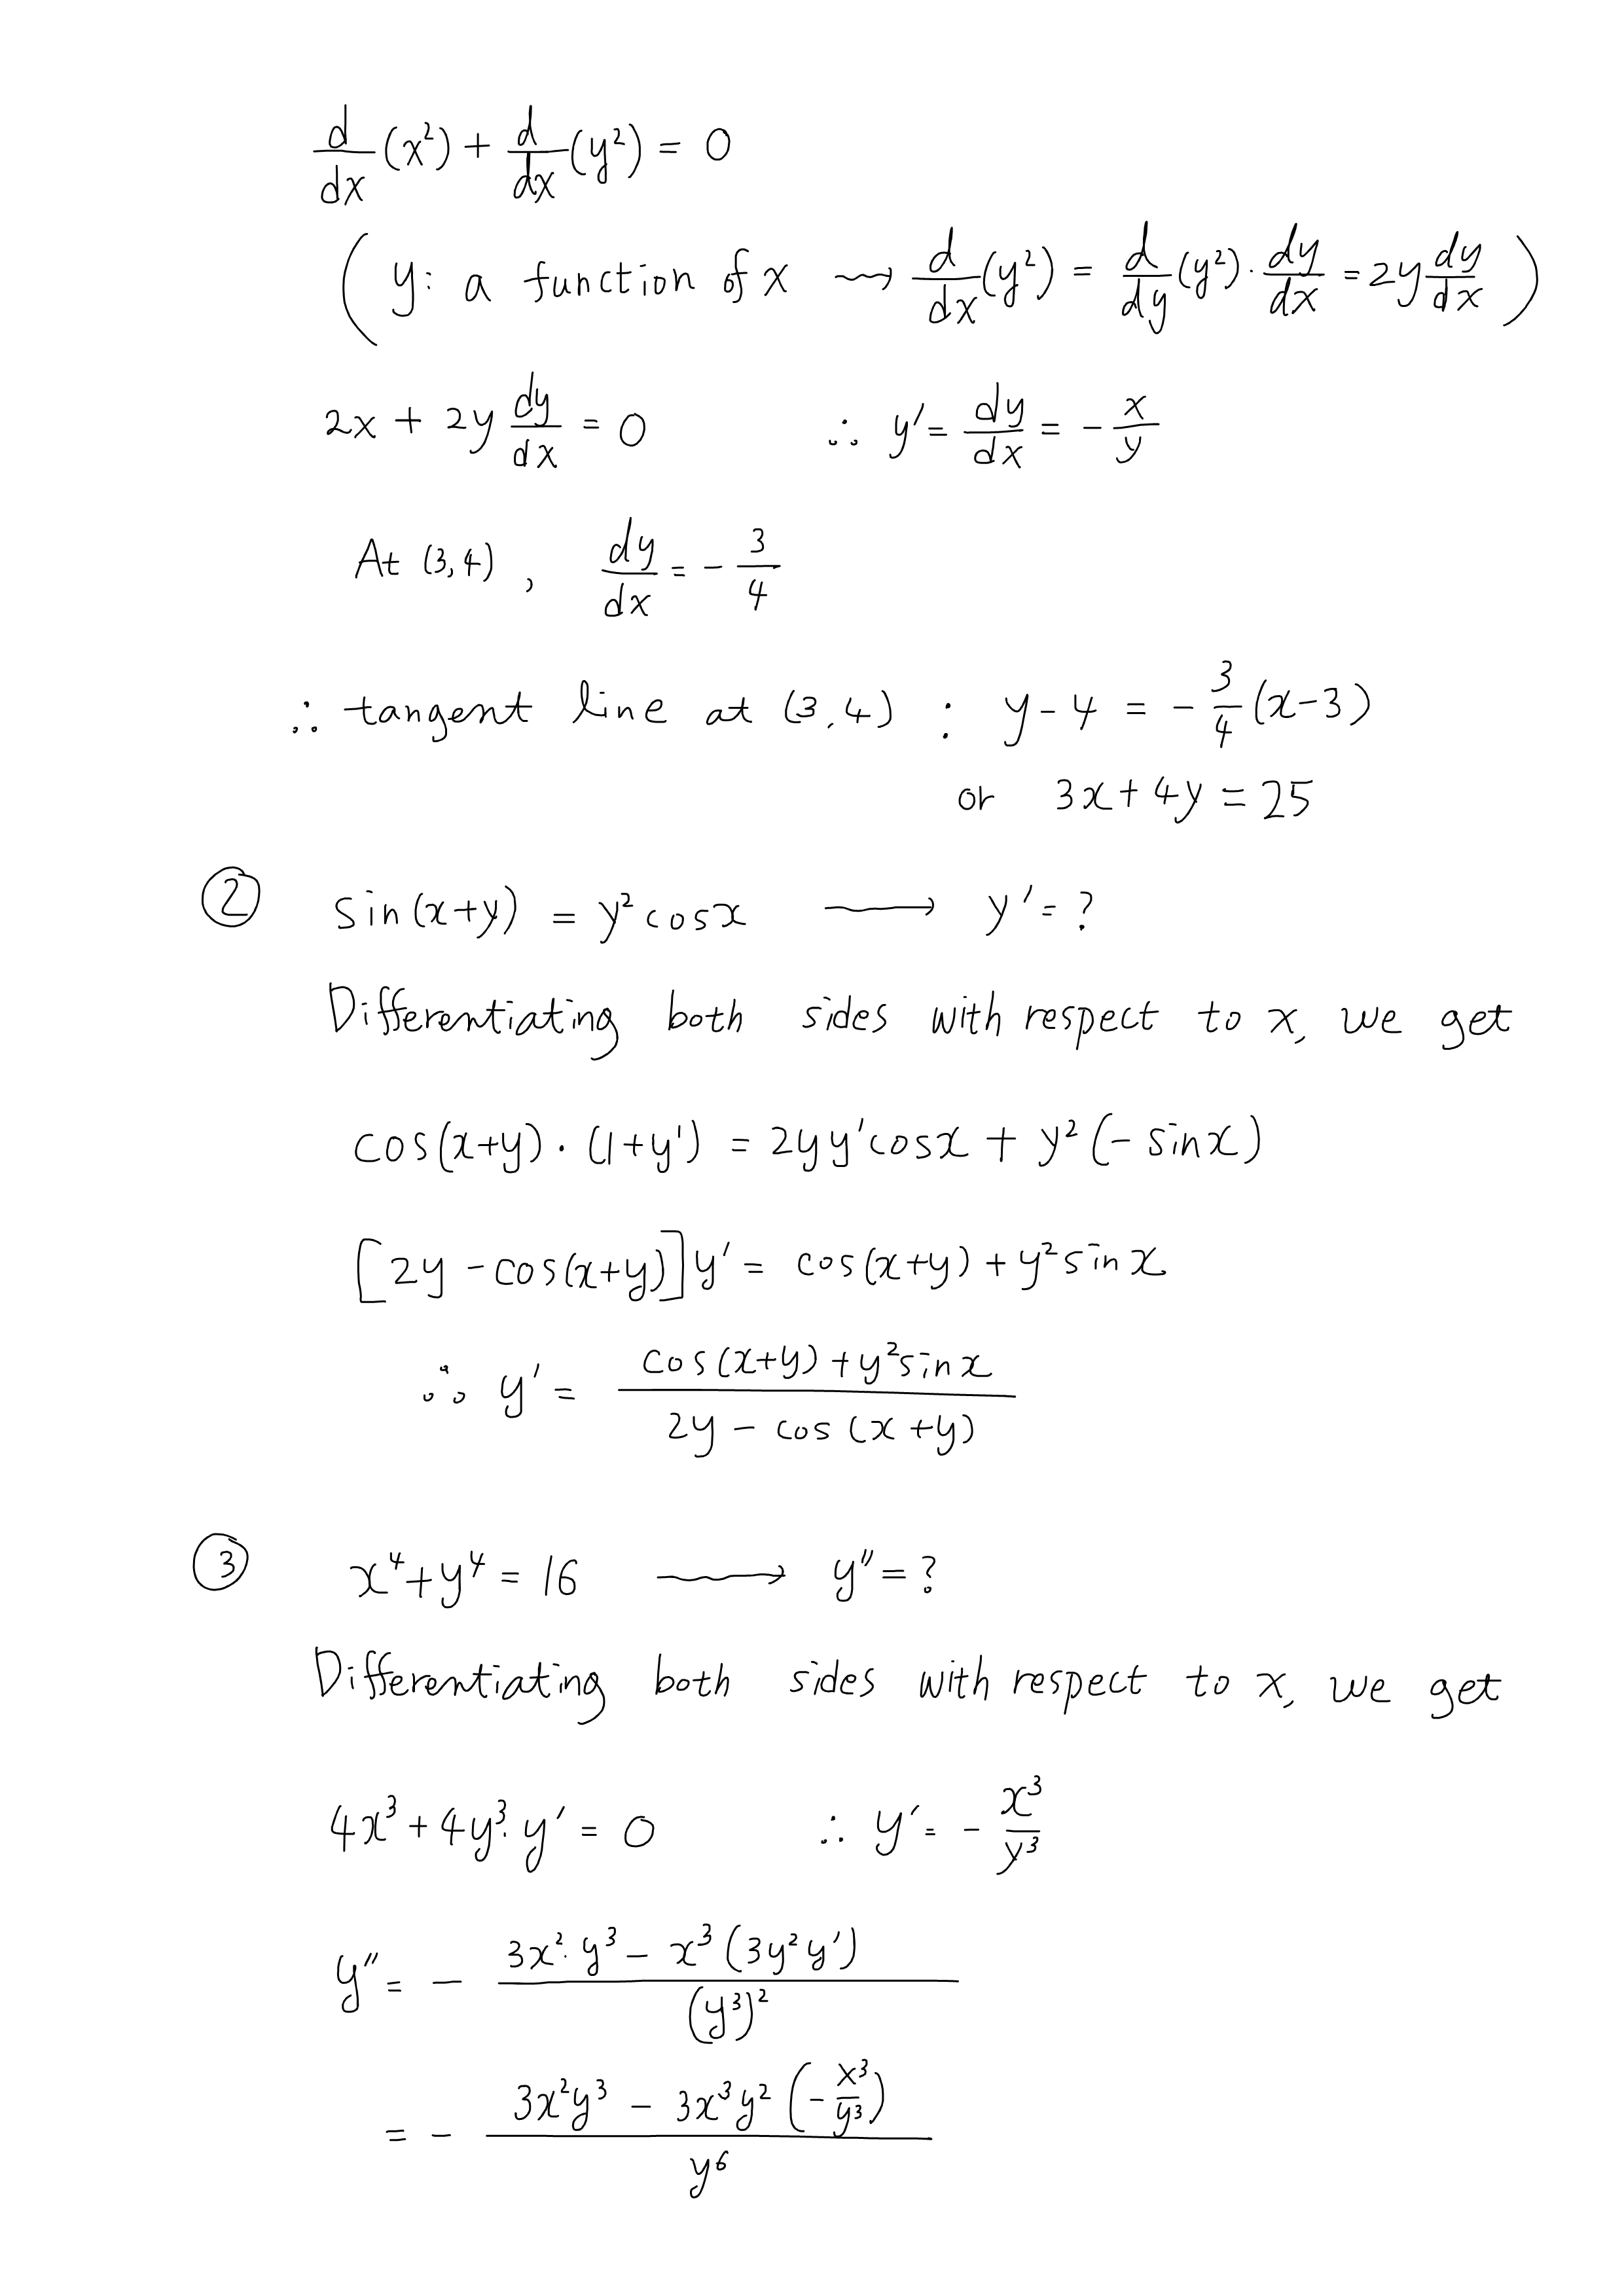 d/dx (x²) + d/dx (y²) = 0
( y: a function of x ⟿ d/dx (y²) = d/dy (y²) · dy/dx = 2y dy/dx )
2x + 2y dy/dx = 0 ∴ y′ = dy/dx = - x/y
At (3,4) , dy/dx = - 3/4
∴ tangent line at (3,4) : y - 4 = - 3/4 (x-3)
or 3x + 4y = 25
② sin(x+y) = y² cosx ⟶ y′ = ?
Differentiating both sides with respect to x, we get
cos(x+y) · (1+y′) = 2y y′ cosx + y² (- sinx)
[2y - cos(x+y)] y′ = cos(x+y) + y² sinx
∴ y′ = (cos(x+y) + y² sinx)/(2y - cos(x+y))
③ x⁴ + y⁴ = 16 ⟶ y″ = ?
Differentiating both sides with respect to x, we get
4x³ + 4y³ · y′ = 0 ∴ y′ = - x³/y³
y″ = - (3x² · y³ - x³ (3y² y′))/(y³)²
= - (3x²y³ - 3x³y² (- x³/y³))/y⁶